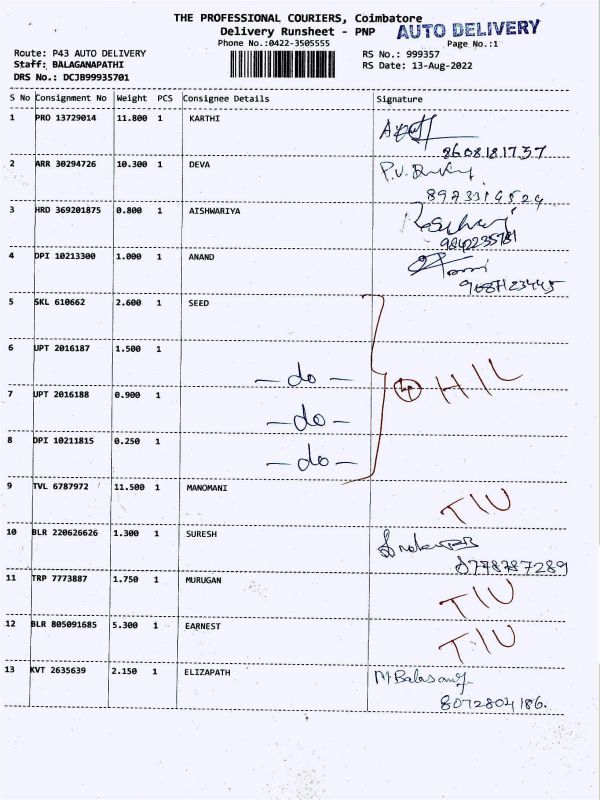 THE PROFESSIONAL COURIERS, Coimbatore
Delivery Runsheet - PNP AUTO DELIVERY
Phone No.:0422-3505555 Page No.:1
Route: P43 AUTO DELIVERY RS No.: 999357
Staff: BALAGANAPATHI RS Date: 13-Aug-2022
DRS No.: DCJB99935701
S No Consignment No Weight PCS Consignee Details Signature
1 PRO 13729014 11.800 1 KARTHI
8608181757
2 ARR 30294726 10.300 1 DEVA
3 HRD 369201875 0.800 1 AISHWARIYA
4 DPI 10213300 1.000 1 ANAND
5 SKL 610662 2.600 1 SEED
6 UPT 2016187 1.500 1
- do -
7 UPT 2016188 0.900 1 4 HIL
- do -
8 DPI 10211815 0.250 1
- do -
9 TVL 6787972 11.500 1 MANOMANI TIU
10 BLR 220626626 1.300 1 SURESH
8778787289
11 TRP 7773887 1.750 1 MURUGAN TIU
12 BLR 805091685 5.300 1 EARNEST TIU
13 KVT 2635639 2.150 1 ELIZAPATH
8072804186.